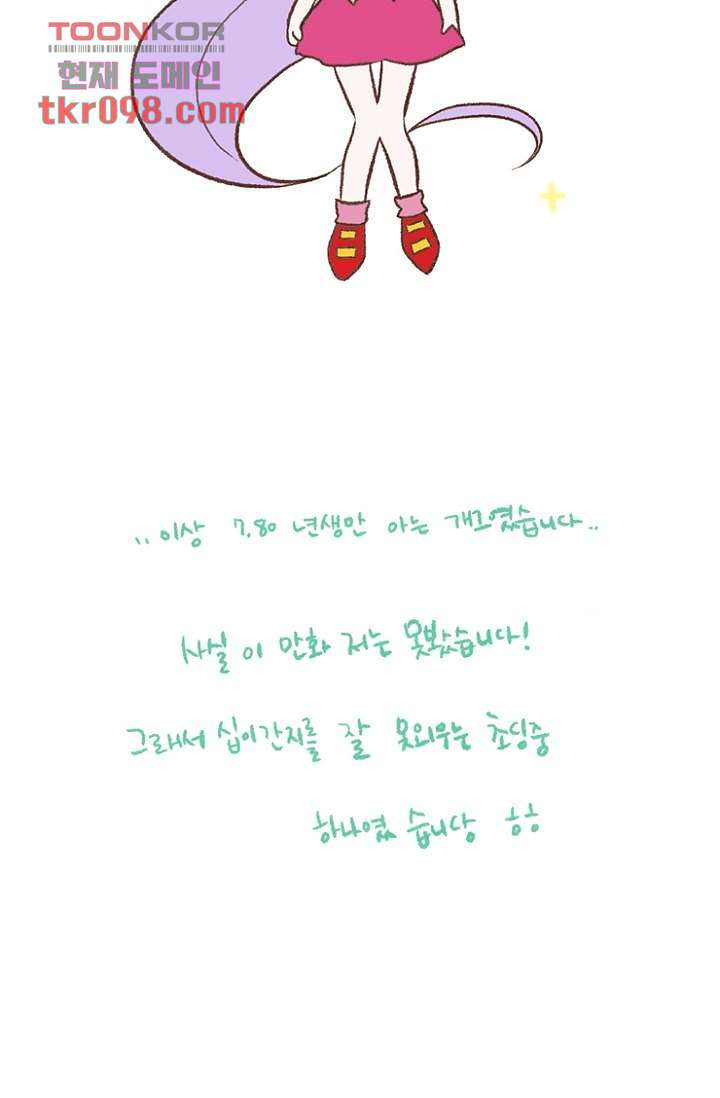 TOONKOR
현재 도메인
tkr098.com
..이상 7,80 년생만 아는 개그였습니다..
사실 이 만화 저는 못봤습니다!
그래서 십이간지를 잘 못외우는 초딩중
하나였 습니당 ㅎㅎ